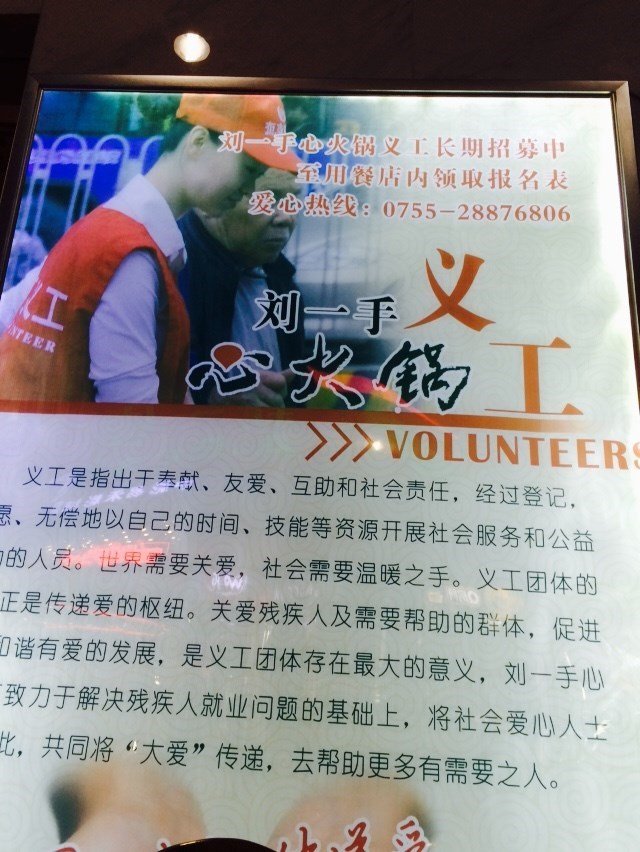 刘一手心火锅义工长期招募中
至用餐店内领取报名表
爱心热线：0755-28876806
刘一手 义工
心火锅
VOLUNTEERS
义工
VOLUNTEER
义工是指出于奉献、友爱、互助和社会责任，经过登记，
愿、无偿地以自己的时间、技能等资源开展社会服务和公益
的人员。世界需要关爱，社会需要温暖之手。义工团体的
正是传递爱的枢纽。关爱残疾人及需要帮助的群体，促进
和谐有爱的发展，是义工团体存在最大的意义，刘一手心
致力于解决残疾人就业问题的基础上，将社会爱心人士
此，共同将“大爱”传递，去帮助更多有需要之人。